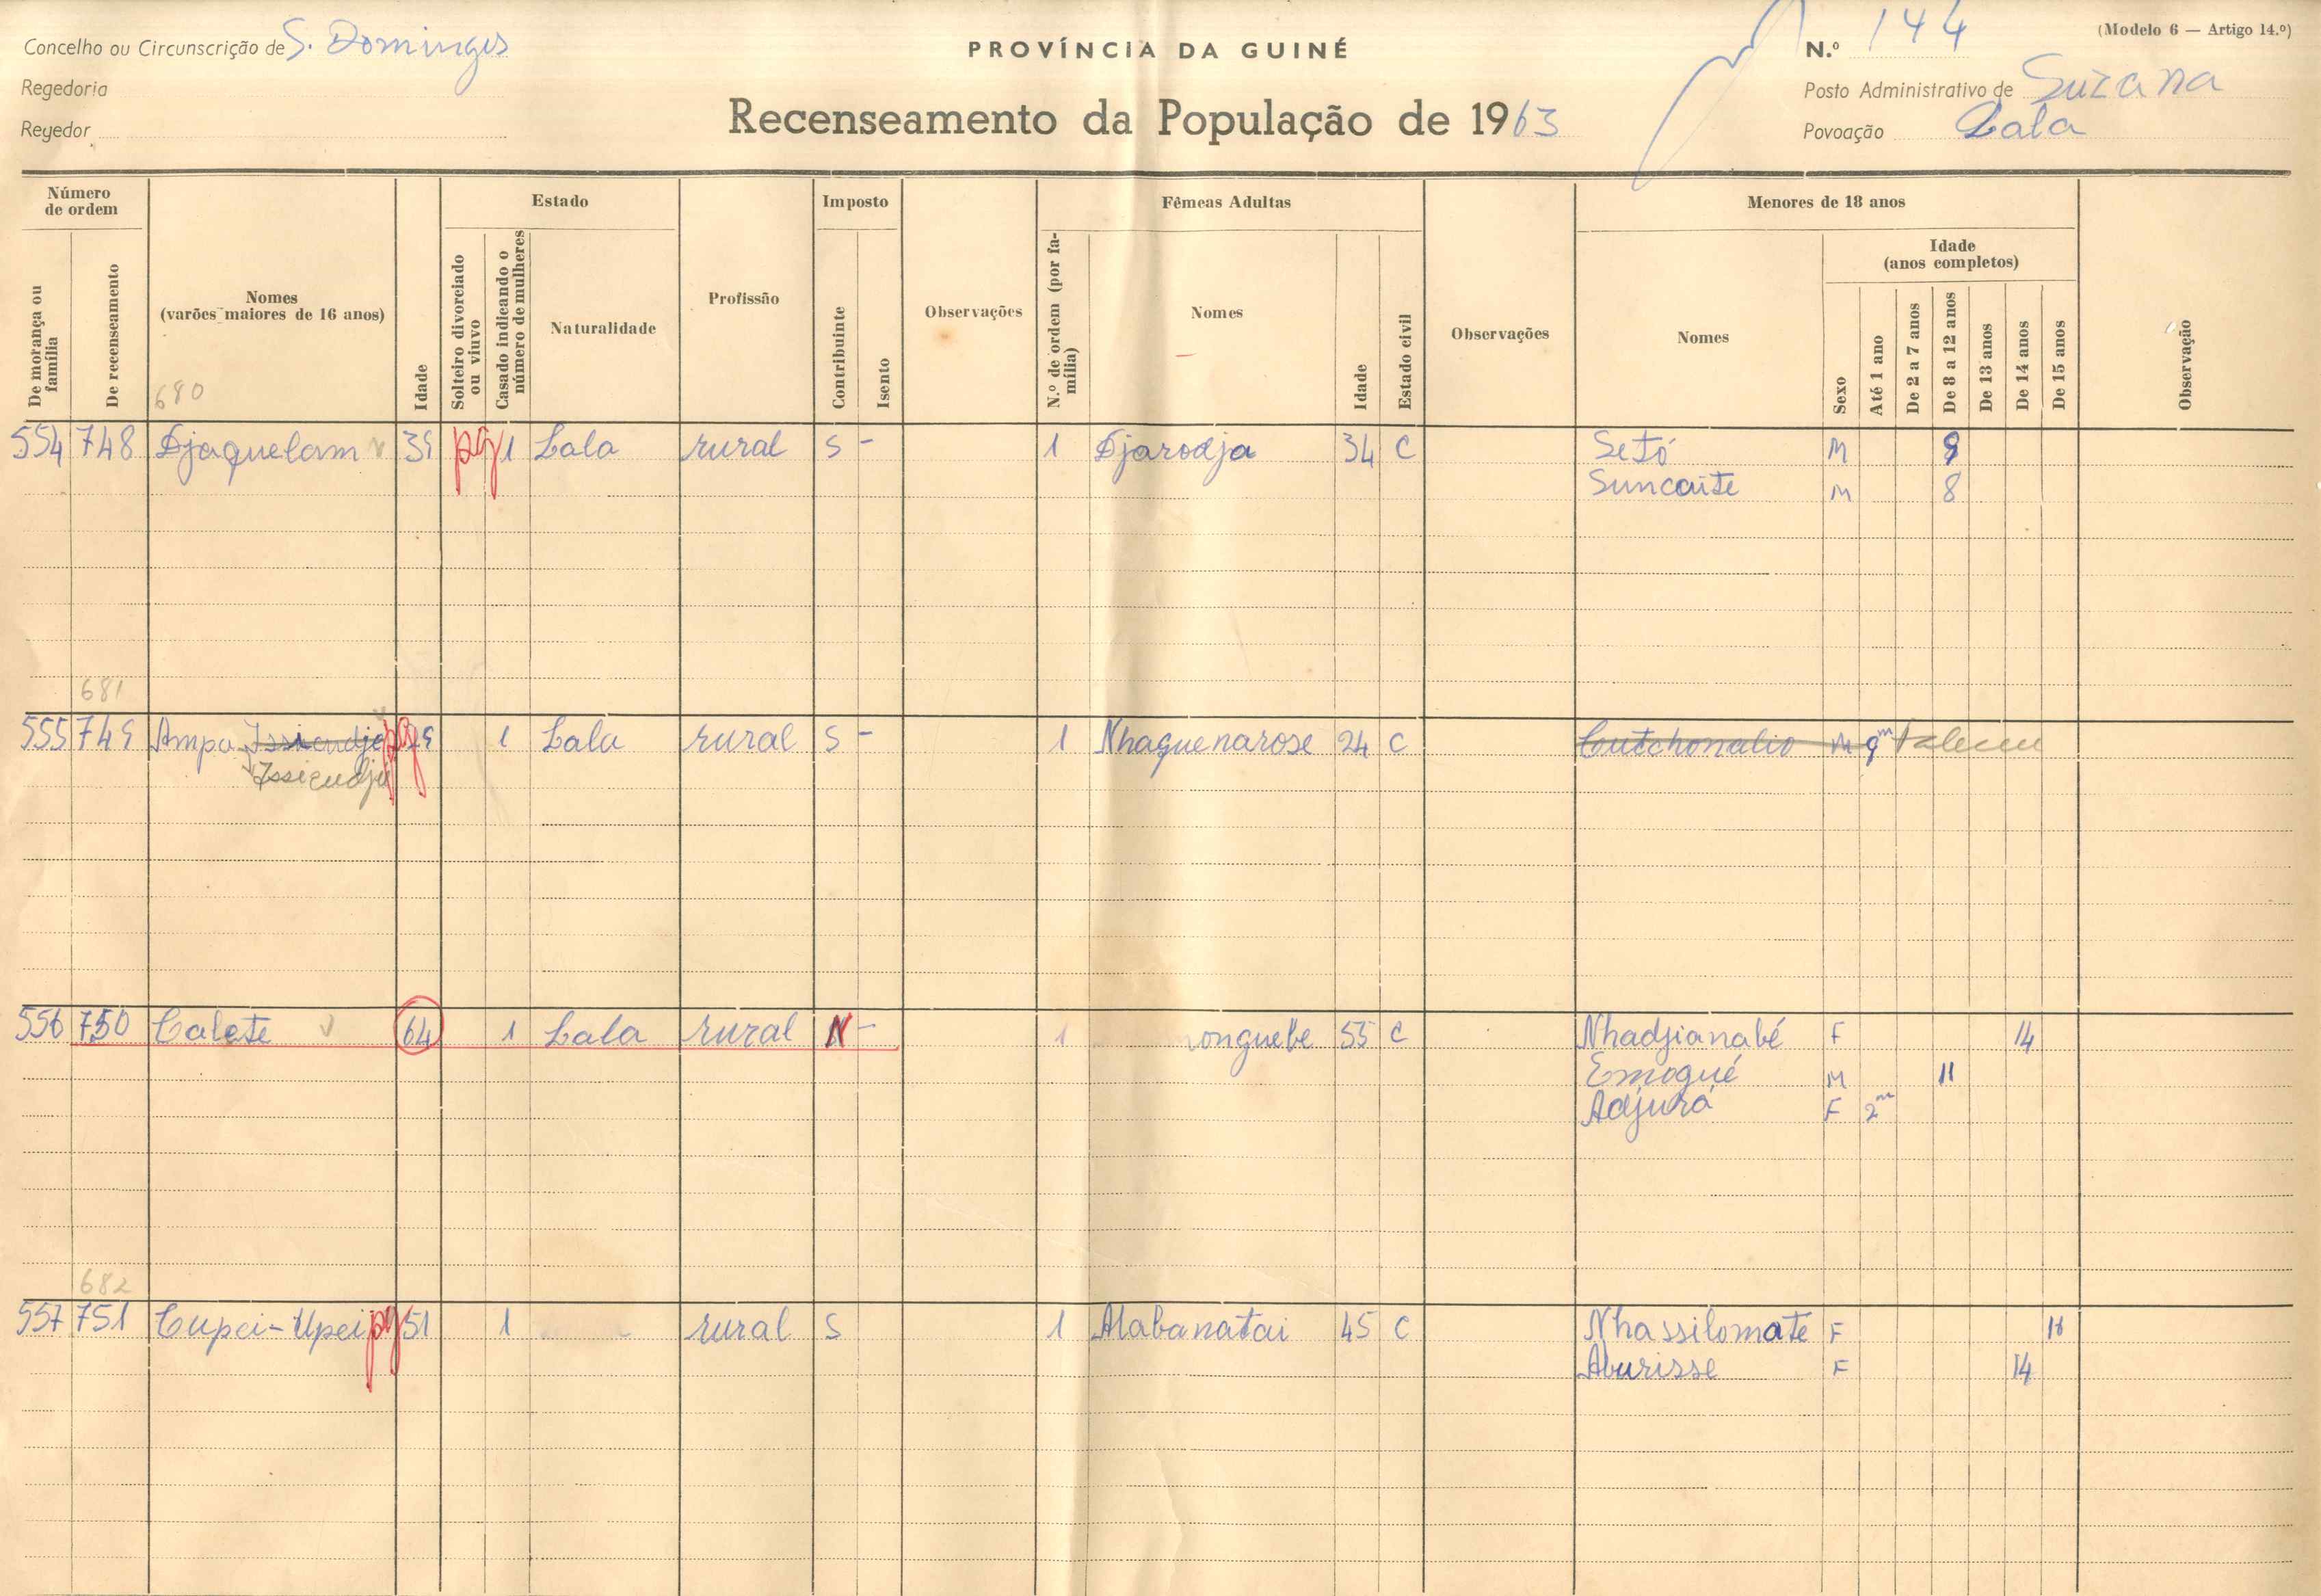 Concelho ou Circunscrição de S. Domingos
PROVÍNCIA DA GUINÉ
N.º 144
(Modelo 6 — Artigo 14.º)
Regedoria
Posto Administrativo de Suzana
Regedor
Recenseamento da População de 1963
Povoação Lala
Número de ordem
De morança ou família
De recenseamento
Nomes
(varões maiores de 16 anos)
680
Idade
Estado
Solteiro divorciado ou viuvo
Casado indicando o número de mulheres
Naturalidade
Profissão
Imposto
Contribuinte
Isento
Observações
Fêmeas Adultas
N.º de ordem (por família)
Nomes
Idade
Estado civil
Observações
Menores de 18 anos
Nomes
Sexo
Idade
(anos completos)
Até 1 ano
De 2 a 7 anos
De 8 a 12 anos
De 13 anos
De 14 anos
De 15 anos
Observação
554 748 Djaquelam 39 pg 1 Lala rural S - 1 Djarodja 34 C Setó M 9
Suncaite M 8
681
555 749 Ampa Issicudje pg 1 Lala rural S - 1 Nhaquenarose 24 C Cutchonalio M 9m
Issicudju
556 750 Calete 64 1 Lala rural N - 1 onguebe 55 C Nhadjianabé F 14
Emogué M 11
Adjurá F 2m
682
557 751 Cupei-Upei pg 51 1 rural S 1 Alabanatai 45 C Nhassilomate F
Aburisse F 14